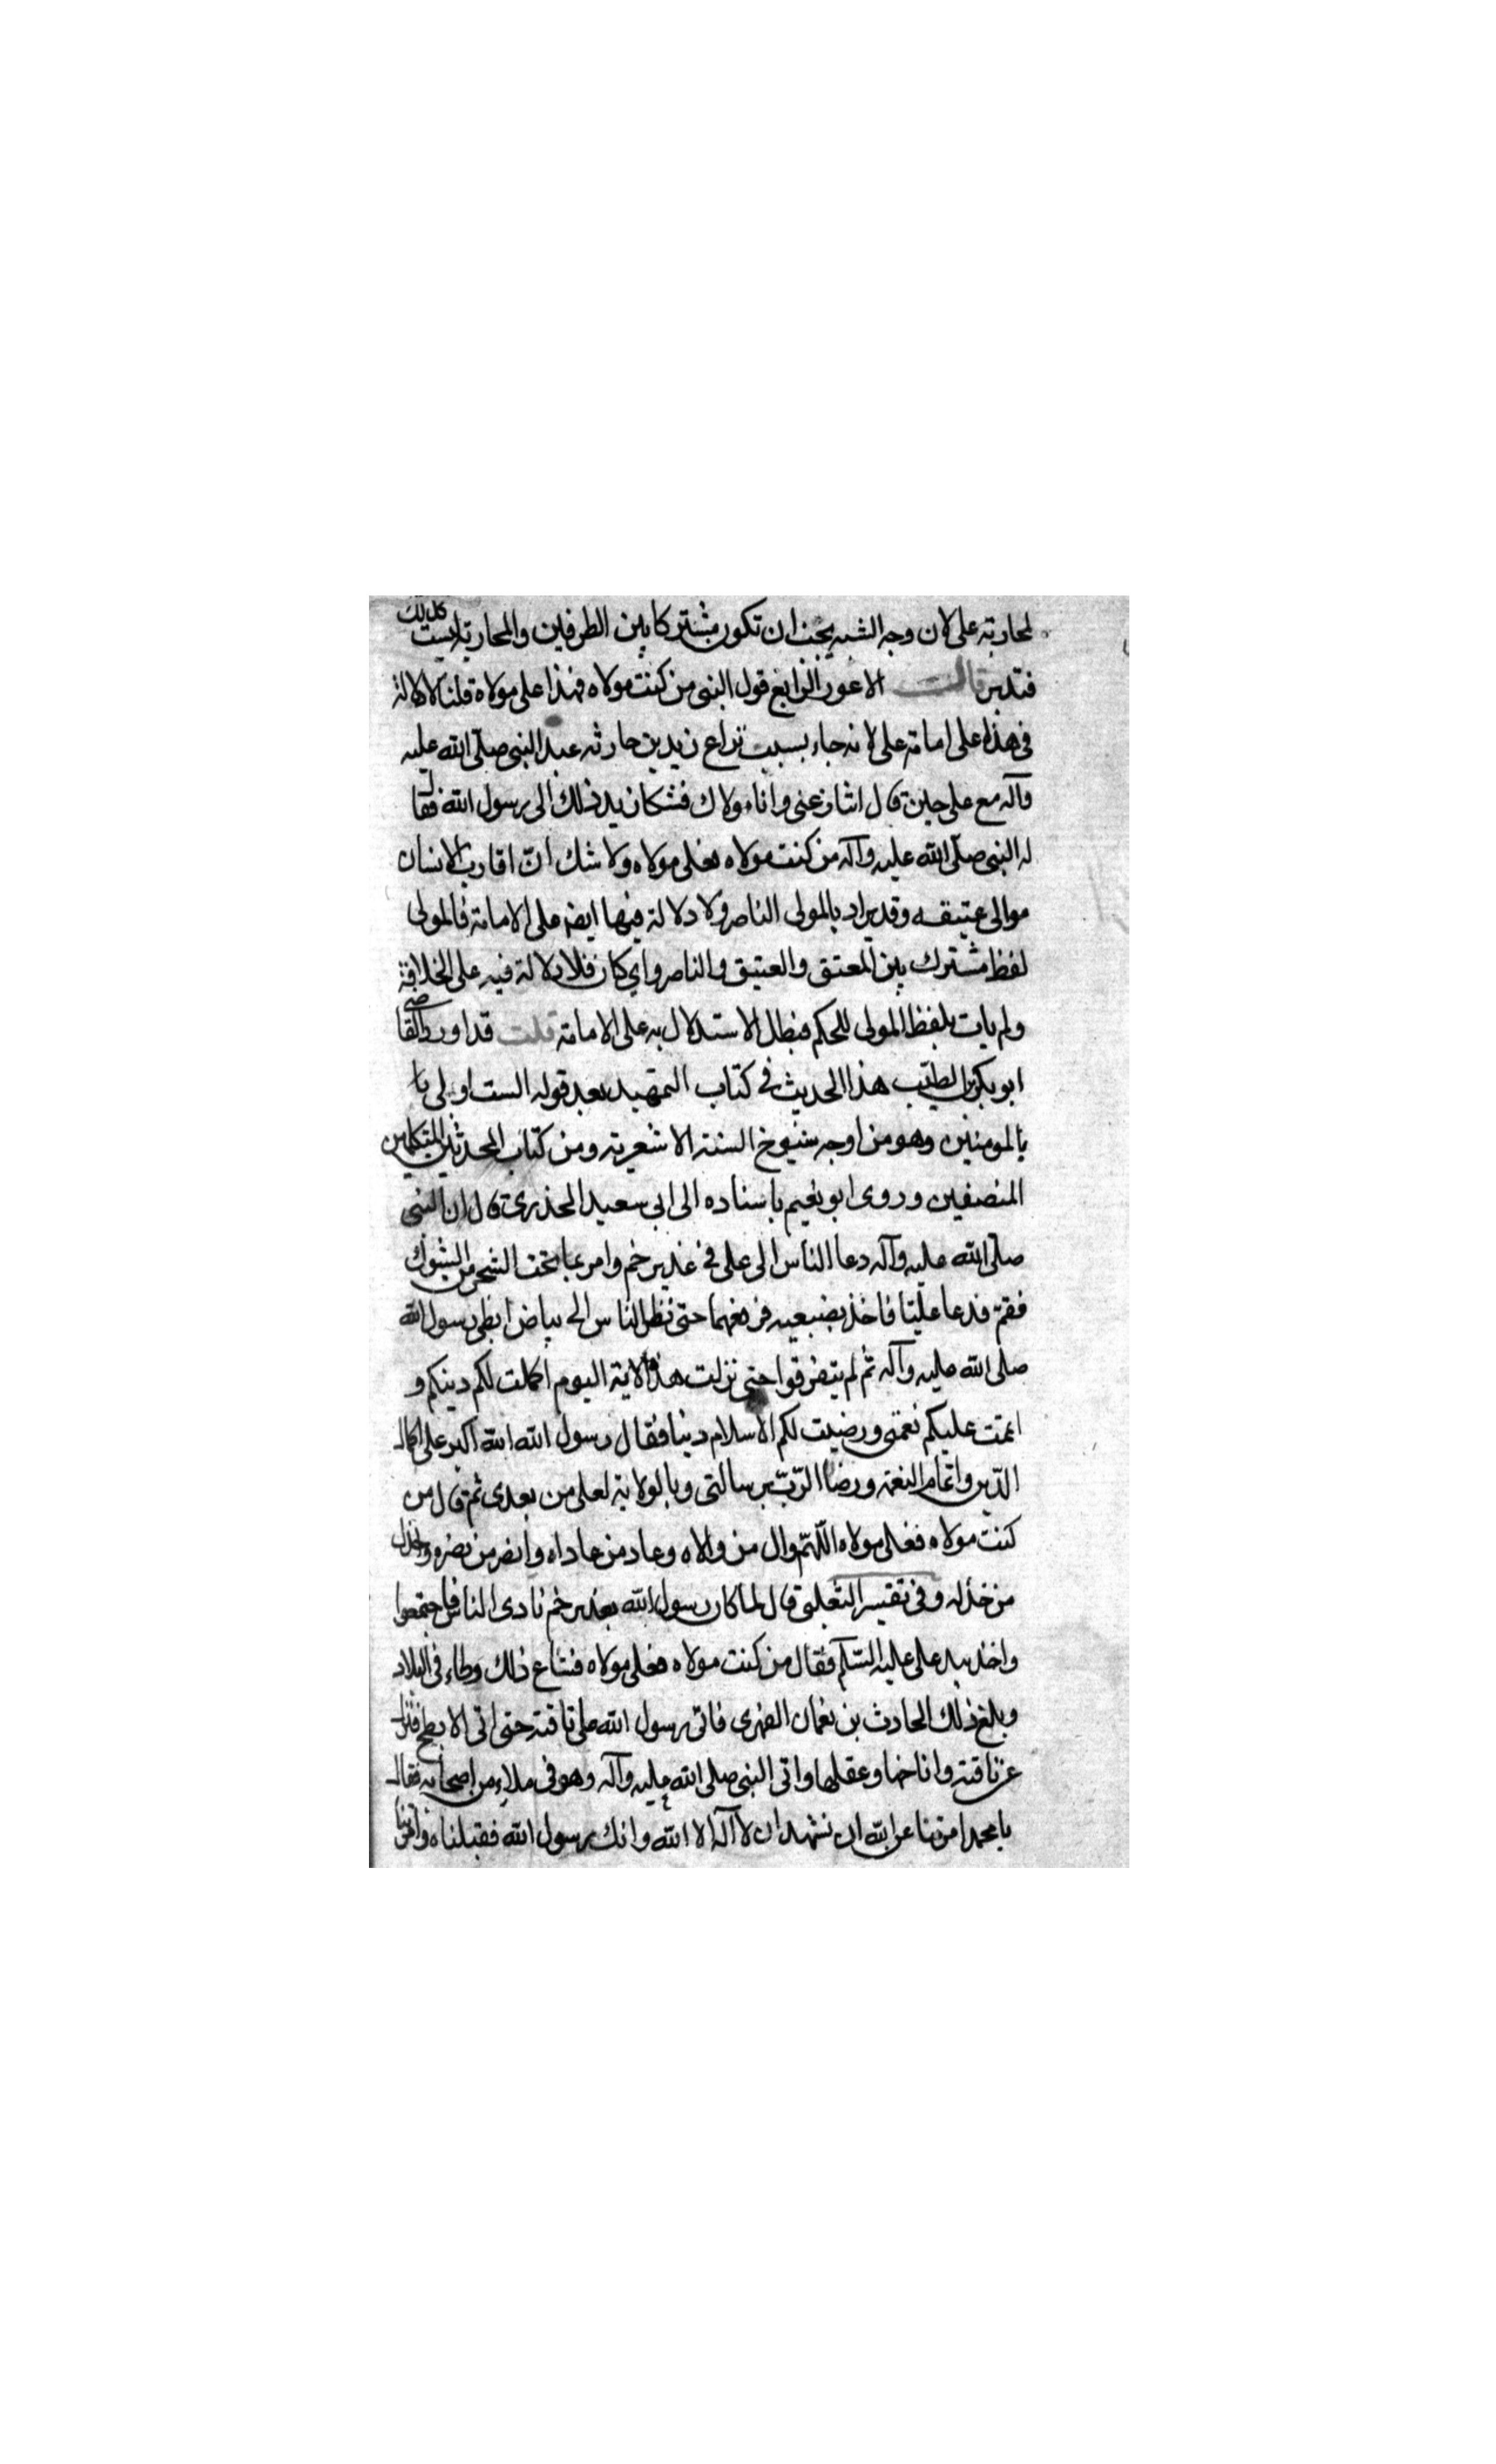 لمحاربة على لان وجه الشبه يجب ان تكون مشتركا بين الطرفين والمحاربة ليست كذلك
فتدبر قال الاعور الرابع قول النبى من كنت مولاه فهذا على مولاه قلنا لا دلالة
فى هذا على امامة على لانه جاء بسبب نزاع زيد بن حارثه عبد النبى صلى الله عليه
وآله مع على حين قال اتنازعنى وانا مولاك فشكا زيد ذلك الى رسول الله فقال
له النبى صلى الله عليه وآله من كنت مولاه فعلى مولاه ولا شك انّ اقارب الانسان
موالى عتيقه وقد يراد بالمولى الناصر ولا دلالة فيها ايضا على الامامة فالمولى
لفظ مشترك بين المعتق والعتيق والناصر واى كان فلا دلالة فيه على الخلافة
ولم يات بلفظ المولى للحكم فبطل الاستدلال به على الامامة قلت قد اورد القاضى
ابو بكر بن الطيّب هذا الحديث فى كتاب التمهيد بعد قوله الست اولى با
بالمومنين وهو من اوجه شيوخ السنة الاشعرية ومن كتاب المحدثين المتكلمين
المنصفين وروى ابو نعيم باسناده الى ابى سعيد الخذرى قال ان النبى
صلّى الله عليه وآله دعا الناس الى على فى غدير خم وامر بما تحت الشجر من الشوك
فقم فدعا عليّا فاخذ بضبعيه فرفعهما حتى نظر الناس الى بياض ابطى رسول الله
صلى الله عليه وآله ثم لم يتفرقوا حتى نزلت هذه الاية اليوم اكملت لكم دينكم و
اتممت عليكم نعمتى ورضيت لكم الاسلام دينا فقال رسول الله الله اكبر على اكمال
الدّين واتمام النعمة ورضا الربّ برسالتى وبالولاية لعلى من بعدى ثم قال من
كنت مولاه فعلى مولاه اللّهم وال من والاه وعاد من عاداه وانصر من نصره واخذل
من خذله وفى تفسير الثعلبى قال لما كان رسول الله بغدير خم نادى الناس فاجتمعوا
واخذ بيد على عليه السّلام فقال من كنت مولاه فعلى مولاه فشاع ذلك وطاء فى البلاد
وبلغ ذلك الحارث بن نعمان الفهرى فاتى رسول الله على ناقته حتى اتى الابطح فنزل
عن ناقته واناخها وعقلها واتى النبى صلى الله عليه وآله وهو فى ملاء من اصحابه فقال
يا محمد امرتنا عن الله ان نشهد ان لا اله الا الله وانك رسول الله فقبلناه وامرتنا